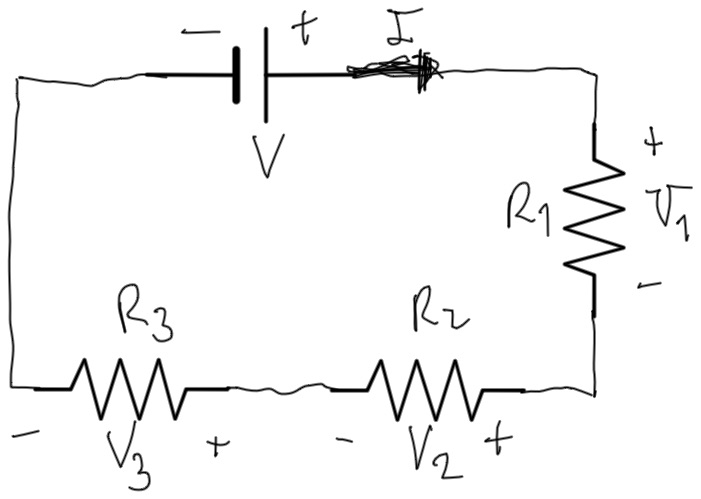 - + I
V
+
R1 V1
-
R3 R2
- V3 + - V2 +